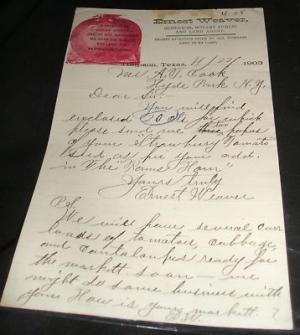 Ernest Weaver,
SURVEYOR, NOTARY PUBLIC
AND LAND AGENT.
Texas, 4/27 1903
Mr A. T. Cook
Hyde Park N.Y.
Dear Sir:
You will find
enclosed for which
please send me three papers
of your "Strawberry Tomato"
seed as per your add.
in The "Farm &
Yours truly
Ernest Weaver
We will have several car
loads of tomatoes, cabbage,
and cantaloupes ready for
the markett soon - we
might do some business with
you. How is your markett?
E.W.